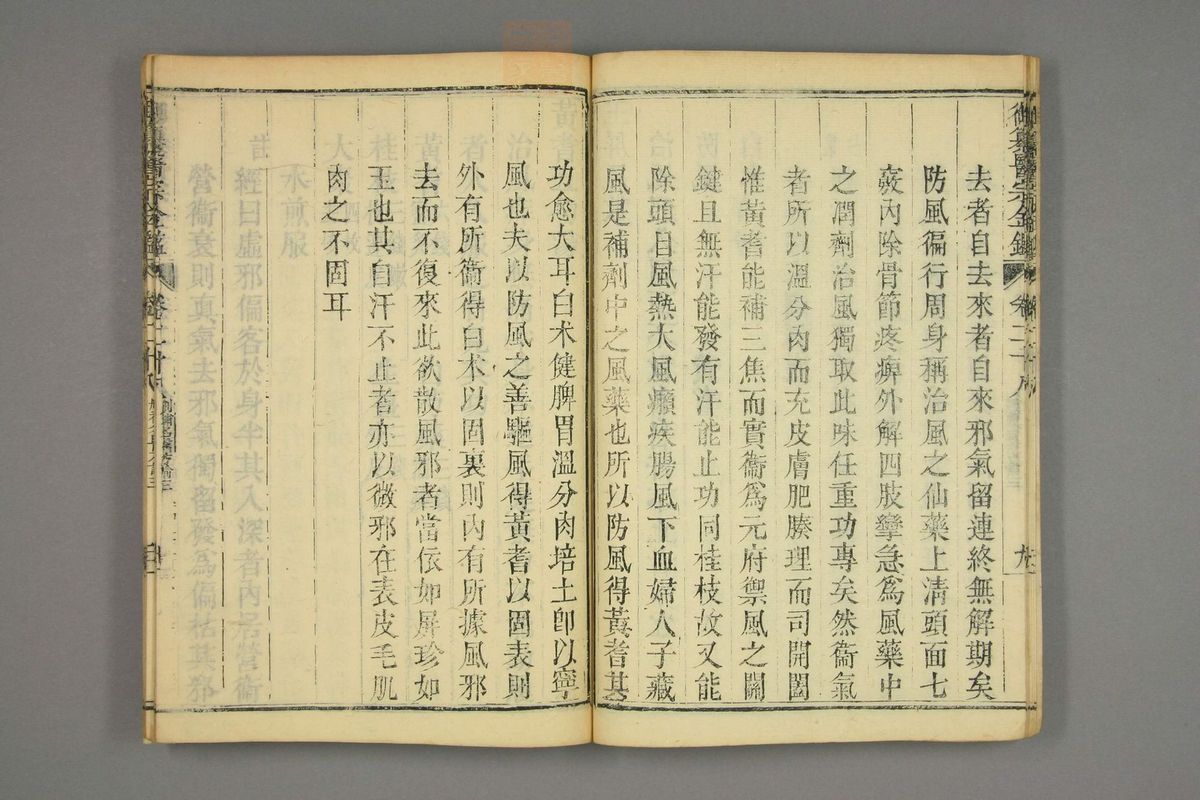 御纂醫宗金鑑
卷二十八
去者自去來者自來邪氣留連終無解期矣
防風徧行周身稱治風之仙藥上清頭面七
竅內除骨節疼痺外解四肢攣急為風藥中
之潤劑治風獨取此味任重功專矣然衞氣
者所以溫分肉而充皮膚肥腠理而司開闔
惟黃耆能補三焦而實衞為元府禦風之關
鍵且無汗能發有汗能止功同桂枝故又能
除頭目風熱大風癩疾腸風下血婦人子臟
風是補劑中之風藥也所以防風得黃耆其
功愈大耳白朮健脾胃溫分肉培土即以寧
風也夫以防風之善驅風得黃耆以固表則
外有所衞得白朮以固裏則內有所據風邪
去而不復來此欲散風邪者當依如屏珍如
玉也其自汗不止者亦以微邪在表皮毛肌
肉之不固耳
御纂醫宗金鑑